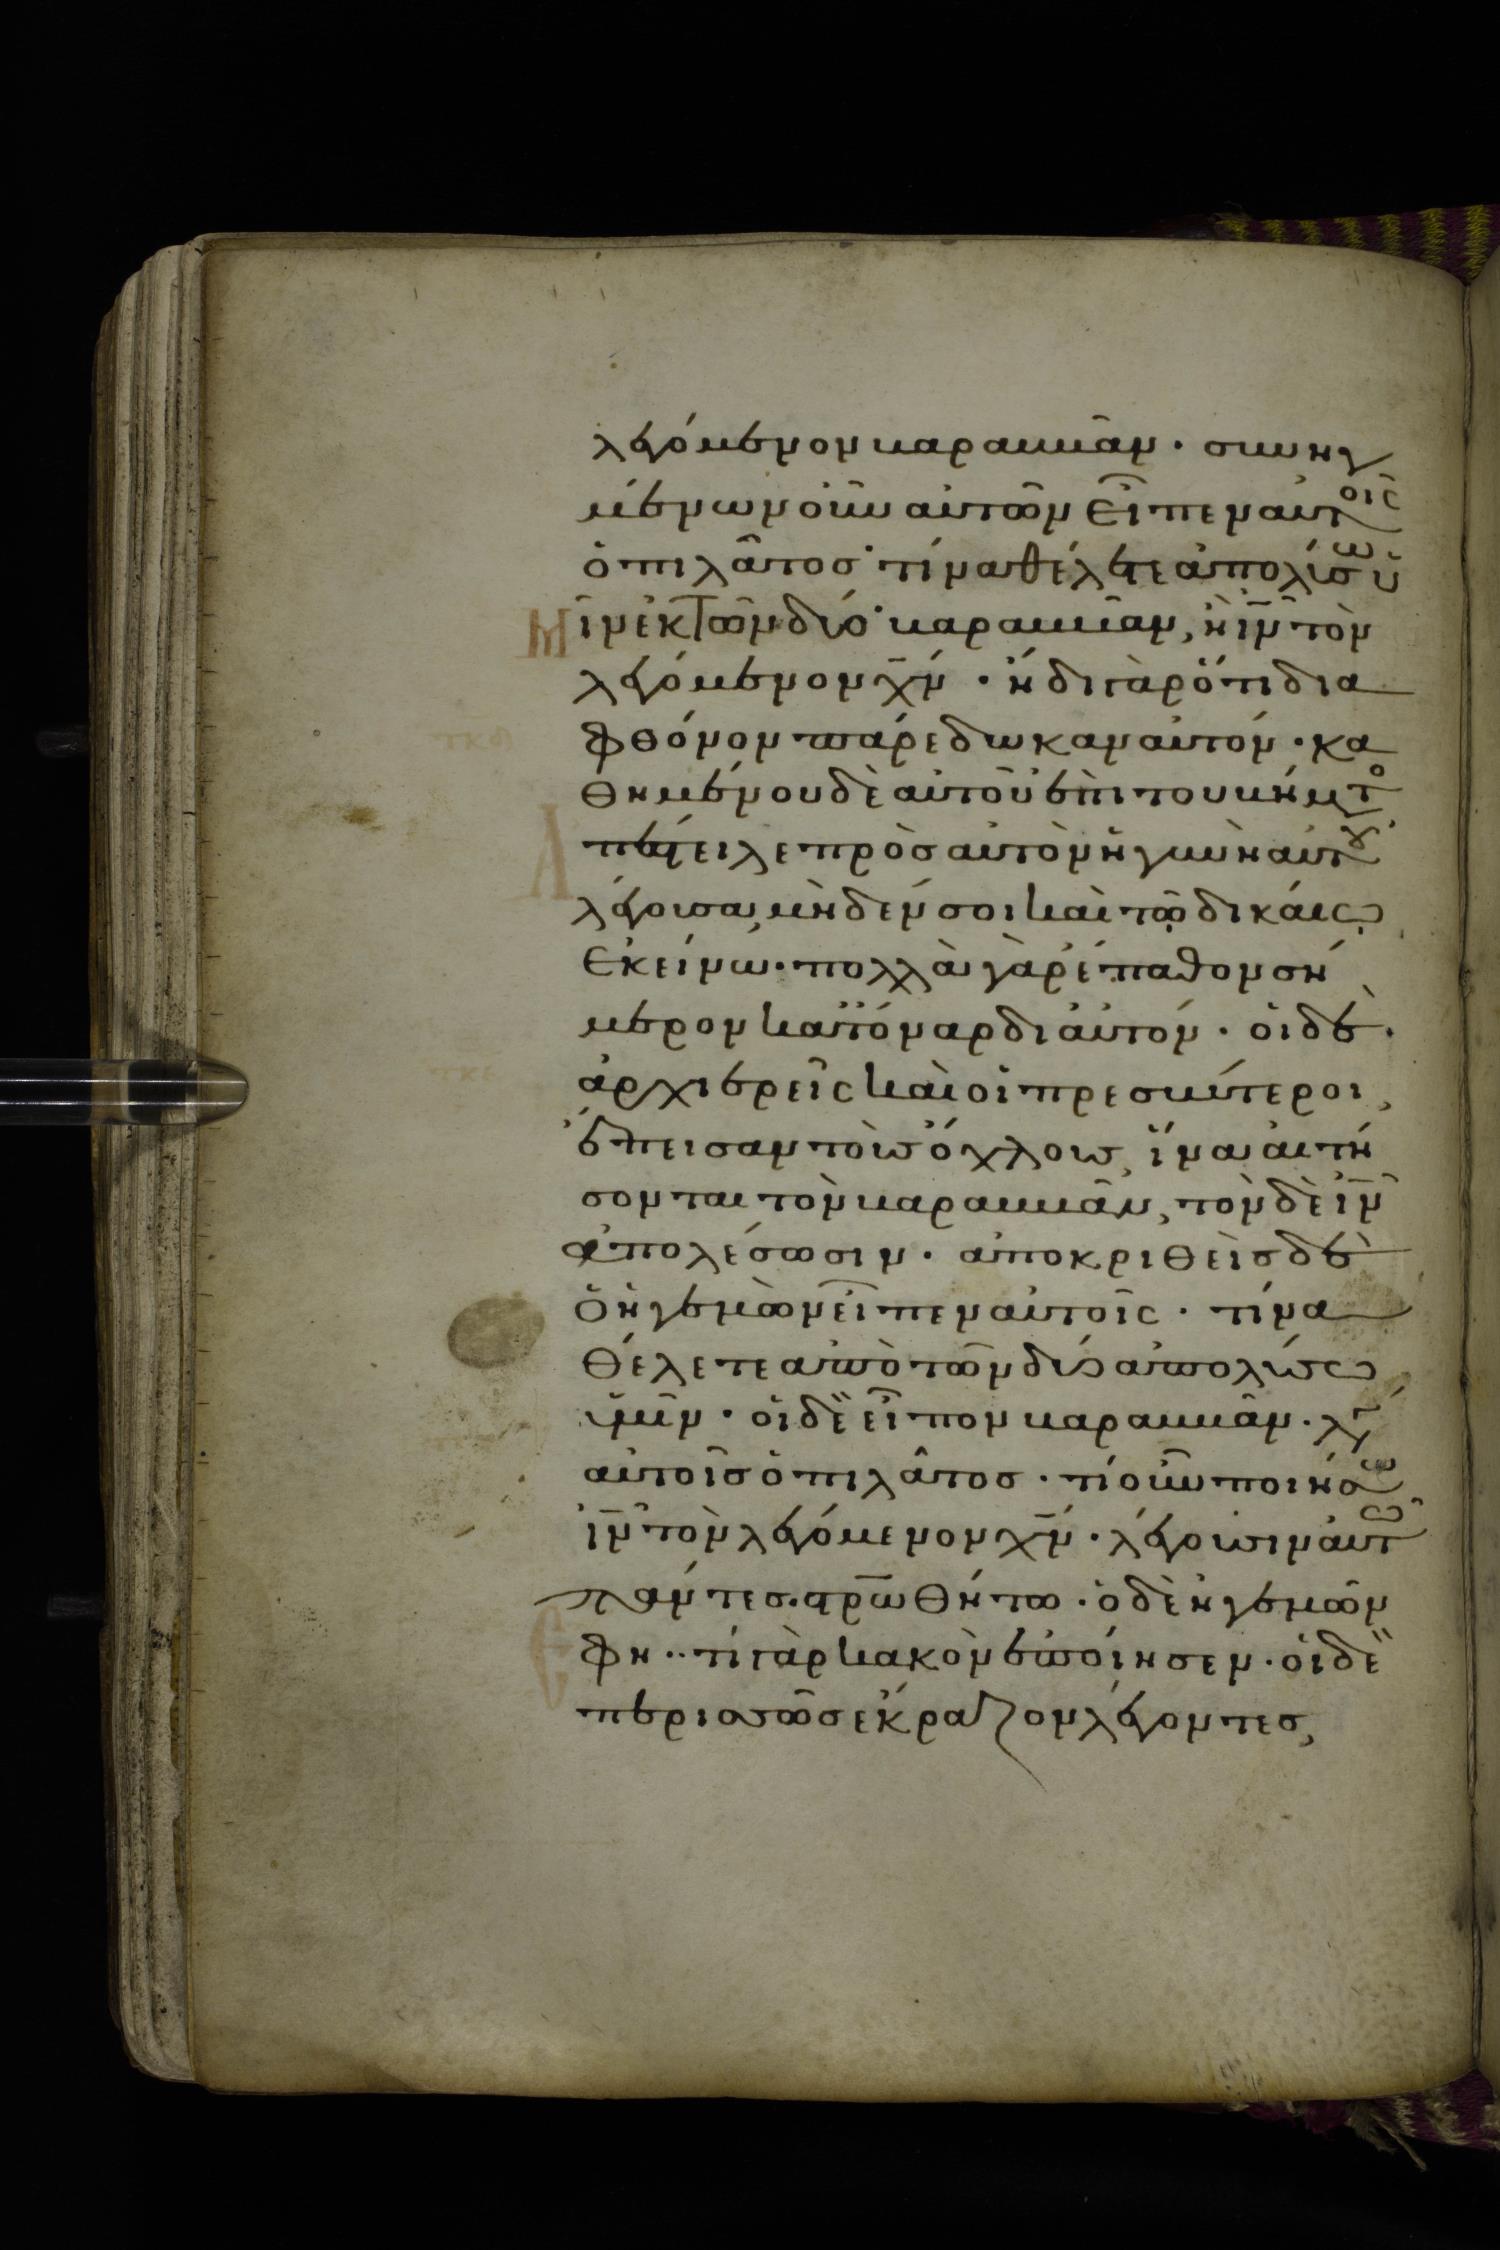 λεγόμενον βαραββᾶν · συνηγ
μένων οὖν αὐτῶν εἶπεν αὐτοῖς
ὁ πιλᾶτος · τίνα θέλετε ἀπολύσω ὑ
μῖν ἐκ τῶν δύο · βαραββᾶν, ἢ ἰ̅ν̅ τὸν
λεγόμενον χ̅ν̅ · ἤδει γὰρ ὅτι δια
φθόνον παρέδωκαν αὐτόν · κα
θημένου δὲ αὐτοῦ ἐπὶ τοῦ βήματο
ἀπέστειλε πρὸς αὐτὸν ἡ γυνὴ αὐτοῦ
λέγουσα, μηδέν σοι καὶ τῷ δικαίῳ
ἐκείνω · πολλὰ γὰρ ἔπαθον σή
μερον κατ ὄναρ δι αὐτόν · οἱ δὲ ·
ἀρχιερεῖς καὶ οἱ πρεσβύτεροι,
ἔπεισαν τοὺς ὄχλους, ἵνα αἰτή
σονται τὸν βαραββᾶν, τὸν δὲ ἰ̅ν̅
ἀπολέσωσιν · ἀποκριθεὶς δὲ
ὁ ἡγεμὼν εἶπεν αὐτοῖς · τίνα
θέλετε ἀπὸ τῶν δύο ἀπολύσω
ὑμῖν · οἱ δὲ εἶπον βαραββᾶν · λέγ
αὐτοῖς ὁ πιλᾶτος · τί οὖν ποιήσω
ἰ̅ν̅ τὸν λεγόμενον χ̅ν̅ · λέγουσιν αὐτῶ
πάντες · στρ̅ω̅θήτω · ὁ δὲ ἡγεμὼν
ἔφη · · τί γὰρ κακὸν ἐποίησεν · οἱ δὲ
περισσῶς ἔκραζον λέγοντες,